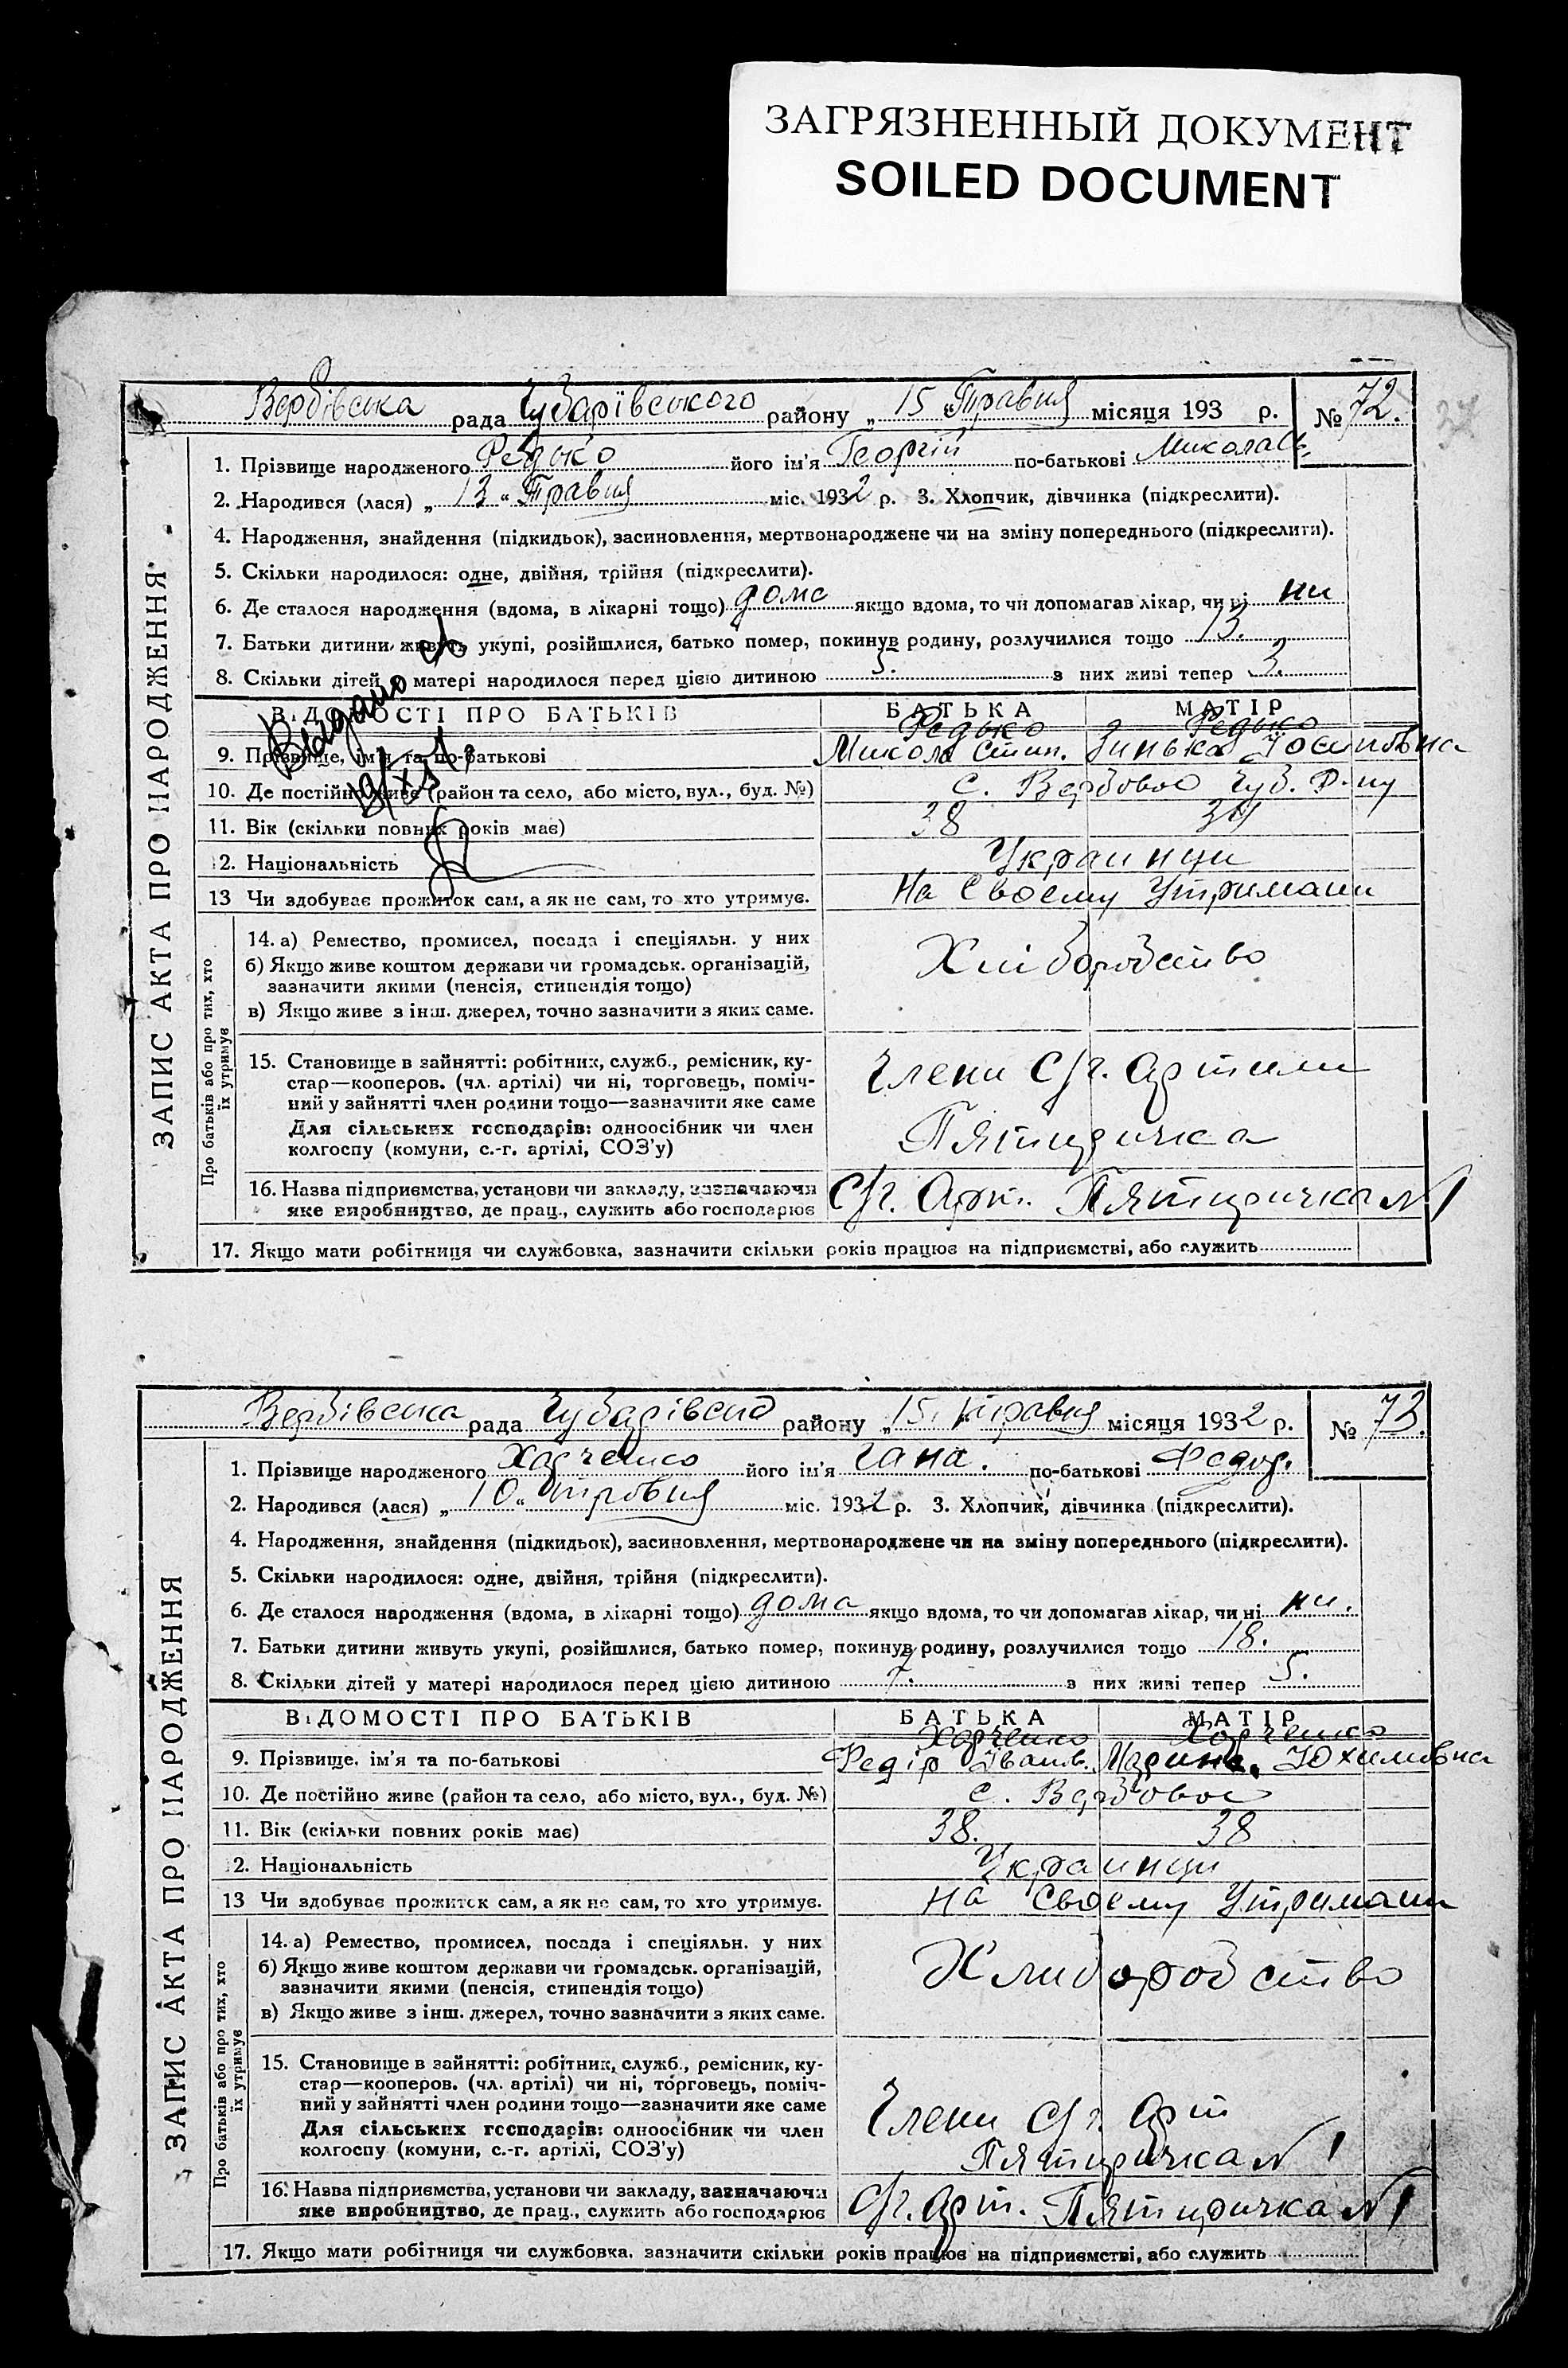 ЗАГРЯЗНЕННЫЙ ДОКУМЕНТ
SOILED DOCUMENT
Вербівська рада Чубарівського району „ 15 " Травня місяця 193 р. № 72.
ЗАПИС АКТА ПРО НАРОДЖЕННЯ
1. Прізвище народженого Редько його ім'я Георгій по-батькові
2. Народився (лася) „ 13 " Травня міс. 1932 р. 3. Хлопчик, дівчинка (підкреслити).
4. Народження, знайдення (підкидьок), засиновлення, мертвонароджене чи на зміну попереднього (підкреслити).
5. Скільки народилося: одне, двійня, трійня (підкреслити).
6. Де сталося народження (вдома, в лікарні тощо) дома якщо вдома, то чи допомагав лікар, чи ні ни
7. Батьки дитини живуть укупі, розійшлися, батько помер, покинув родину, розлучилися тощо 13.
8. Скільки дітей матері народилося перед цією дитиною 5. з них живі тепер 3.
Видано
ВІДОМОСТІ ПРО БАТЬКІВ БАТЬКА МАТІР
Редько Редько
9. Прізвище, ім'я та по-батькові Микола Зинька
10. Де постійно живе (район та село, або місто, вул., буд. №) с. Вербовое Чуб. Р-ну
11. Вік (скільки повних років має) 38
12. Національність Украинци
13 Чи здобуває прожиток сам, а як не сам, то хто утримує. На своему Утримани
Про батьків або про тих, хто їх утримує
14. а) Ремество, промисел, посада і спеціяльн. у них
б) Якщо живе коштом держави чи громадськ. організацій,
зазначити якими (пенсія, стипендія тощо)
в) Якщо живе з інш. джерел, точно зазначити з яких саме.
Хліборобство
15. Становище в зайнятті: робітник, служб., ремісник, ку-
стар—кооперов. (чл. артілі) чи ні, торговець, поміч-
ний у зайнятті член родини тощо—зазначити яке саме
Для сільських господарів: одноосібник чи член
колгоспу (комуни, с.-г. артілі, СОЗ'у)
Члени С/г. Артили
Пятиричка
16. Назва підприємства, установи чи закладу, зазначаючи
яке виробництво, де прац., служить або господарює
С/г. Арт. Пятиричка N 1
17. Якщо мати робітниця чи службовка, зазначити скільки років працює на підприємстві, або служить
Вербівська рада району „ 15. " травня місяця 1932 р. № 73.
ЗАПИС АКТА ПРО НАРОДЖЕННЯ
1. Прізвище народженого Харченко його ім'я Гана. по-батькові Федор.
2. Народився (лася) „ 10 " міс. 1932 р. 3. Хлопчик, дівчинка (підкреслити).
4. Народження, знайдення (підкидьок), засиновлення, мертвонароджене чи на зміну попереднього (підкреслити).
5. Скільки народилося: одне, двійня, трійня (підкреслити).
6. Де сталося народження (вдома, в лікарні тощо) дома якщо вдома, то чи допомагав лікар, чи ні ни.
7. Батьки дитини живуть укупі, розійшлися, батько помер, покинув родину, розлучилися тощо 18.
8. Скільки дітей у матері народилося перед цією дитиною 7. з них живі тепер 5.
ВІДОМОСТІ ПРО БАТЬКІВ БАТЬКА МАТІР
Харченко Харченко
9. Прізвище, ім'я та по-батькові Федір Іванов. Юхимовна
10. Де постійно живе (район та село, або місто, вул., буд. №) с. Вербовое
11. Вік (скільки повних років має) 38. 38
12. Національність Украинци
13 Чи здобуває прожиток сам, а як не сам, то хто утримує. на Своему Утримани
Про батьків або про тих, хто їх утримує
14. а) Ремество, промисел, посада і спеціяльн. у них
б) Якщо живе коштом держави чи громадськ. організацій,
зазначити якими (пенсія, стипендія тощо)
в) Якщо живе з інш. джерел, точно зазначити з яких саме.
Хлиборобство
15. Становище в зайнятті: робітник, служб., ремісник, ку-
стар—кооперов. (чл. артілі) чи ні, торговець, поміч-
ний у зайнятті член родини тощо—зазначити яке саме
Для сільських господарів: одноосібник чи член
колгоспу (комуни, с.-г. артілі, СОЗ'у)
Члени С/г. Арт
Пятиричка N 1
16. Назва підприємства, установи чи закладу, зазначаючи
яке виробництво, де прац., служить або господарює
С/г. Арт. Пятиричка N 1
17. Якщо мати робітниця чи службовка, зазначити скільки років працює на підприємстві, або служить